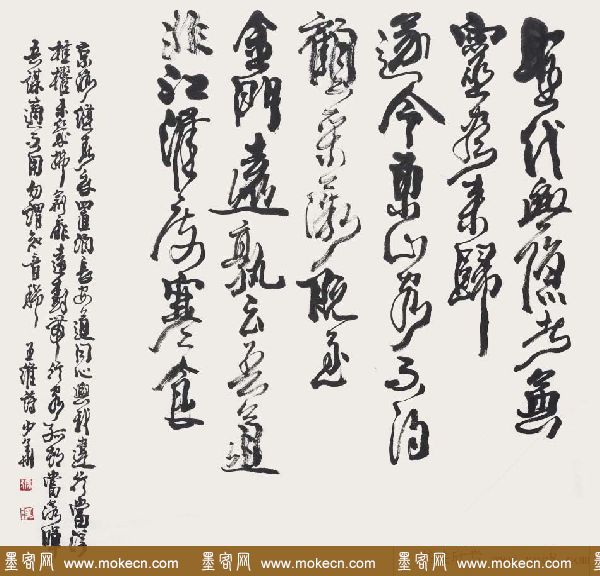 聖代無隱者英
靈盡來歸
遂令東山客不得
顧采薇既至
金門遠孰云吾道
非江淮度寒食
京洛縫春衣置酒長安道同心與我違行當浮
桂櫂未幾拂荊扉遠樹帶行客孤城當落暉
吾謀適不用勿謂知音稀 王維詩 少華
墨客网 www.mokecn.com 墨客网 www.mokecn.com 墨客网 www.mokecn.com